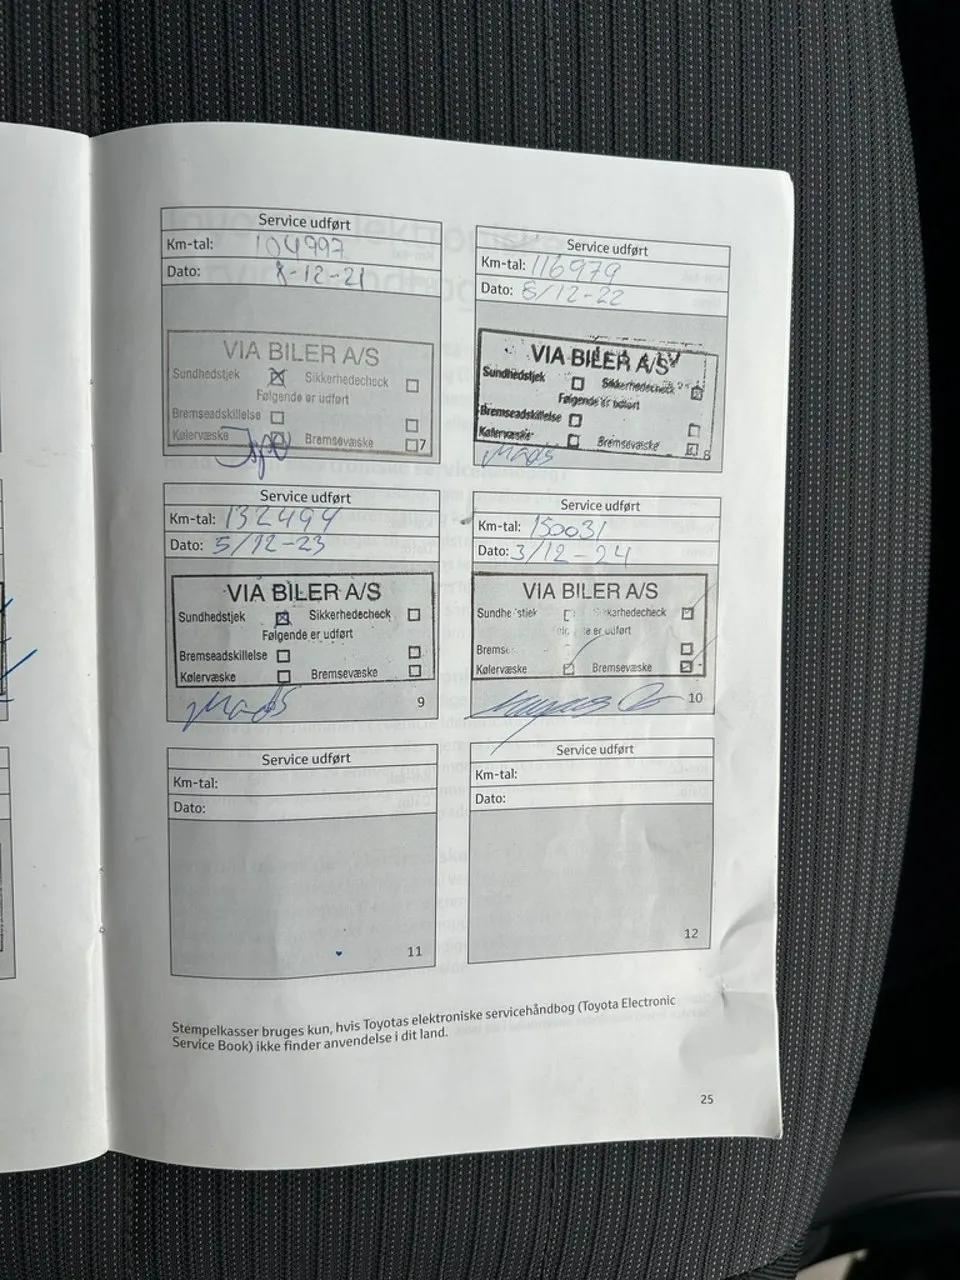 Service udført
Km-tal: 104997
Dato: 8-12-21
VIA BILER A/S
Sundhedstjek Sikkerhedecheck
Følgende er udført
Bremseadskillelse
Kølervæske Bremsevæske
7
Service udført
Km-tal: 116979
Dato: 8/12-22
VIA BILER A/S
Sundhedstjek Sikkerhedecheck
Følgende er udført
Bremseadskillelse
Kølervæske Bremsevæske
8
Mads
Service udført
Km-tal: 132494
Dato: 5/12-23
VIA BILER A/S
Sundhedstjek Sikkerhedecheck
Følgende er udført
Bremseadskillelse
Kølervæske Bremsevæske
Mads
9
Service udført
Km-tal: 150031
Dato: 3/12-24
VIA BILER A/S
Sundhe stjek Sikkerhedecheck
er udført
Bremse
Kølervæske Bremsevæske
10
Service udført
Km-tal:
Dato:
11
Service udført
Km-tal:
Dato:
12
Stempelkasser bruges kun, hvis Toyotas elektroniske servicehåndbog (Toyota Electronic
Service Book) ikke finder anvendelse i dit land.
25